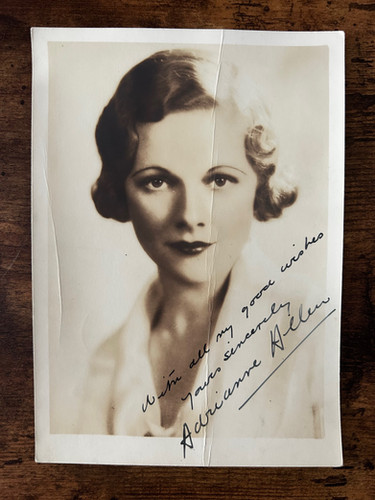 With all my good wishes
yours sincerely
Adrianne Allen